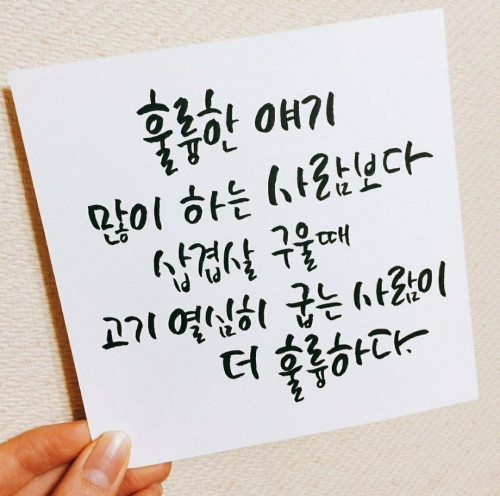 훌륭한 얘기
많이 하는 사람보다
삼겹살 구울때
고기 열심히 굽는 사람이
더 훌륭하다.